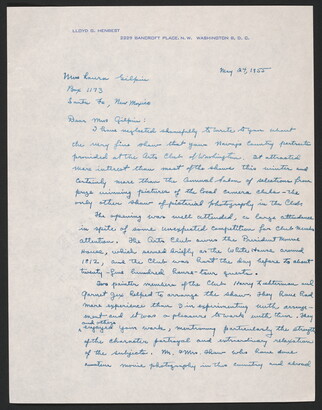 LLOYD G. HENBEST
2259 BANCROFT PLACE, N. W. WASHINGTON 8, D. C.
May 27, 1955
Miss Laura Gilpin
Box 1173
Santa Fe, New Mexico
Dear Miss Gilpin:
I have neglected shamefully to write to you about
the very fine show that your Navajo Country portraits
provided at the Arts Club of Washington. It attracted
more interest than most of the shows this winter and
certainly more than the Annual Salon of selections from
prize winning pictures of the local camera clubs—the
only other show of pictorial photography in the Club.
The opening was well attended, a large attendance
in spite of some unexpected competition for Club
attention. The Arts Club owns the President Monroe
House, which served briefly as the White House around
1812, and the Club was host the day before to about
twenty-five hundred house-tour guests.
Two painter members of the Club Henry and
Garnet Jex helped to arrange the show. They have had
more experience than I in experimenting with arrange-
ment and it was a pleasure to work with them. They
and others
enjoyed your work, mentioning particularly the strength
of the character portrayal and extraordinary relaxation
of the subjects. Mr. & Mrs. Shaw who have done
movie photography in this country and abroad